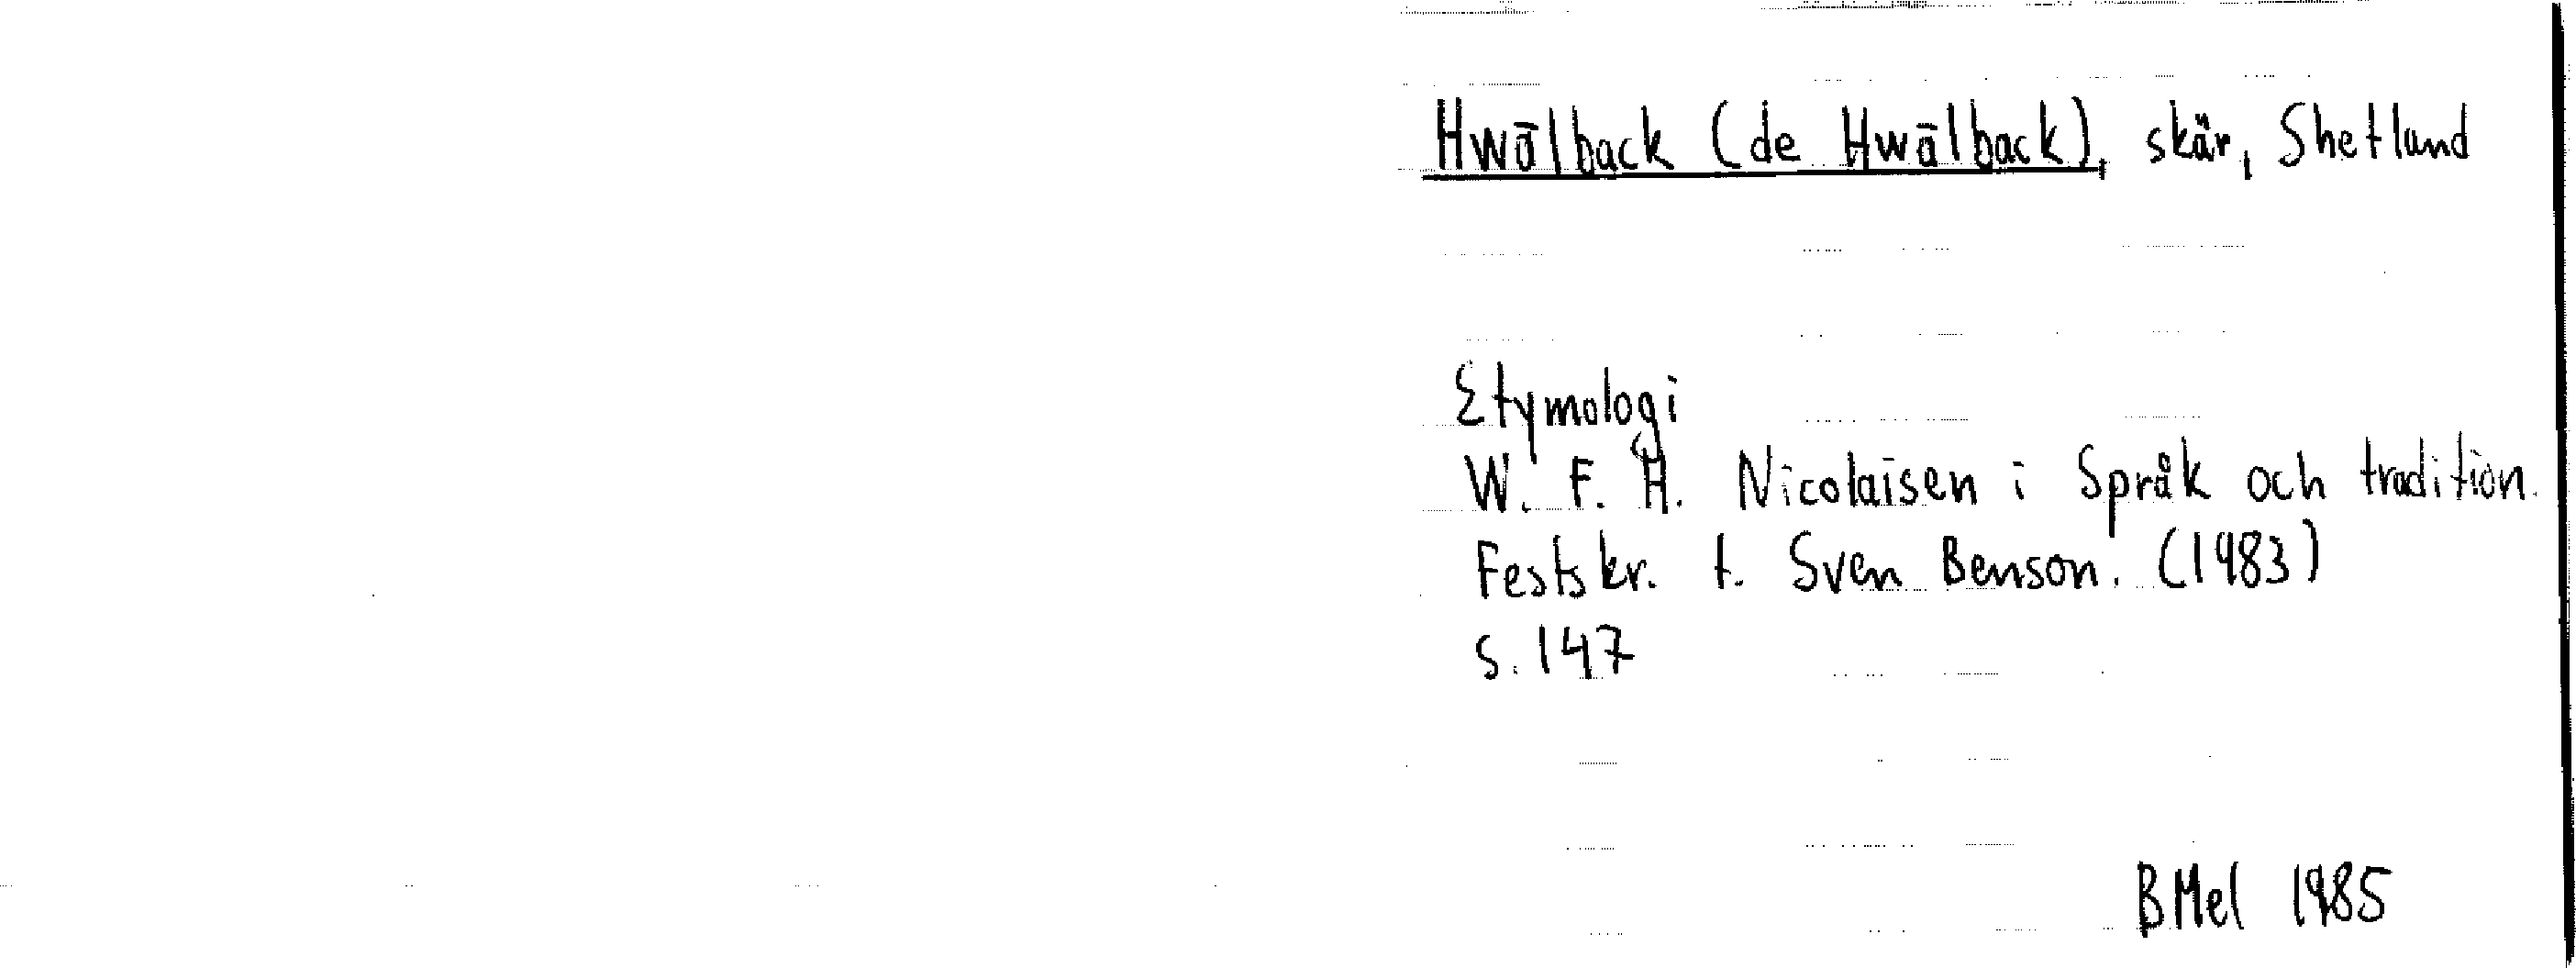 Hwālback (de Hwālback), skär, Shetland
Etymologi
W. F. H. Nicolaisen i Språk och tradition.
Festskr. t. Sven Benson. (1983)
s. 147
BMel 1985